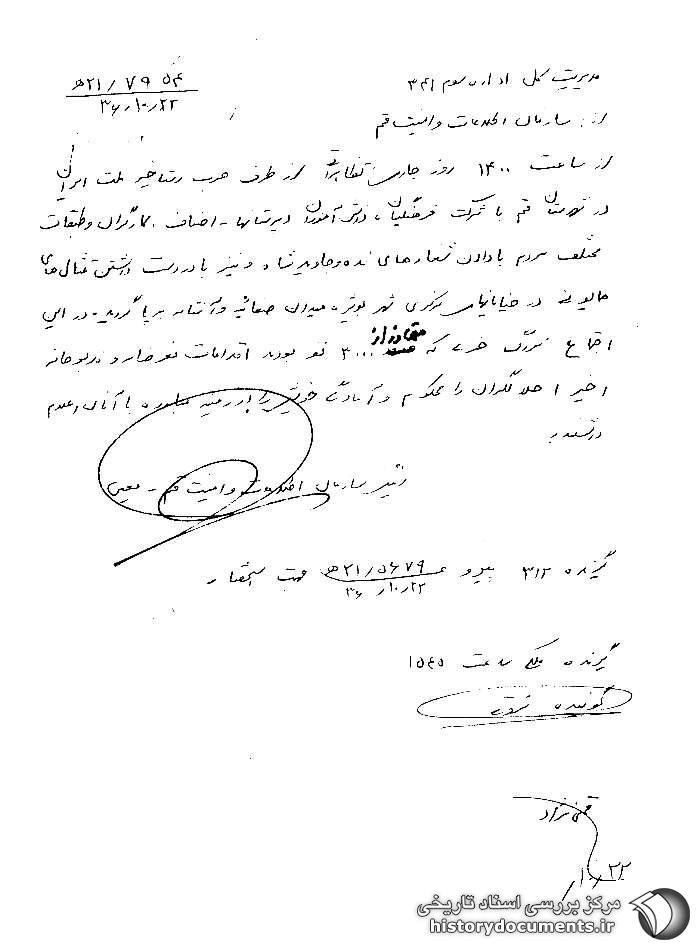 مدیریت کل اداره سوم ۳۴۱
۲۱/۷۹۵۴ھ
۳۶/۱۰/۲۲
از: سازمان اطلاعات و امنیت قم
از ساعت ۱۴۰۰ روز جاری تظاهراتی از طرف حزب رستاخیز ملت ایران
در شهرستان قم با شرکت فرهنگیان، دانش آموزان دبیرستانها - اصناف - کارگران و طبقات
مختلف مردم با دادن شعارهای زنده و جاوید شاه و نیز با در دست داشتن تمثال های
همایونی در خیابانهای مرکزی شهر بویژه میدان صفائیه و آستانه برپا گردید - در این
اجتماع بزرگ حزبی که متجاوز از ۳۰۰۰ نفر بودند اقدامات
اخیر اخلالگران را محکوم و آمادگی خویش را در زمینه مبارزه با آنان اعلام
داشتند
رئیس سازمان اطلاعات و امنیت قم - معینی
گیرنده ۳۱۲ پیرو ۲۱/۵۶۷۹ھ جهت استحضار
۳۶/۱۰/۲۲
گیرنده ساعت ۱۵۴۵
گوینده
۱۰/۲۲
مرکز بررسی اسناد تاریخی
historydocuments.ir